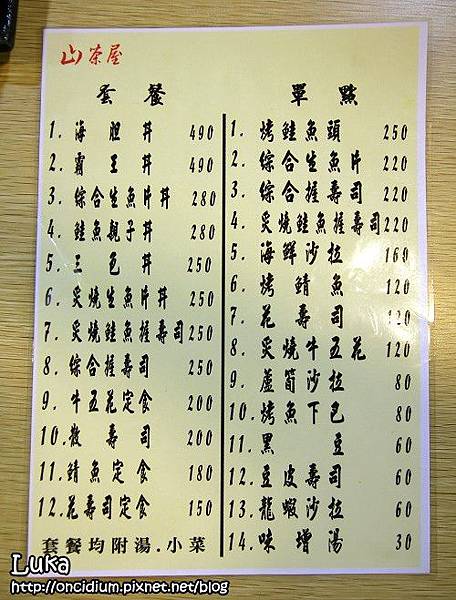 山茶屋
套餐
1. 海胆丼 490
2. 霸王丼 490
3. 綜合生魚片丼 280
4. 鮭魚親子丼 280
5. 三色丼 250
6. 炙燒生魚片丼 250
7. 炙燒鮭魚握壽司 250
8. 綜合握壽司 250
9. 牛五花定食 200
10. 散壽司 200
11. 鯖魚定食 180
12. 花壽司定食 150
套餐均附湯.小菜
單點
1. 烤鮭魚頭 250
2. 綜合生魚片 220
3. 綜合握壽司 220
4. 炙燒鮭魚握壽司 220
5. 海鮮沙拉 160
6. 烤鯖魚 120
7. 花壽司 120
8. 炙燒牛五花 120
9. 蘆筍沙拉 80
10. 烤魚下巴 80
11. 黑豆 60
12. 豆皮壽司 60
13. 龍蝦沙拉 60
14. 味增湯 30
Luka
http://oncidium.pixnet.net/blog